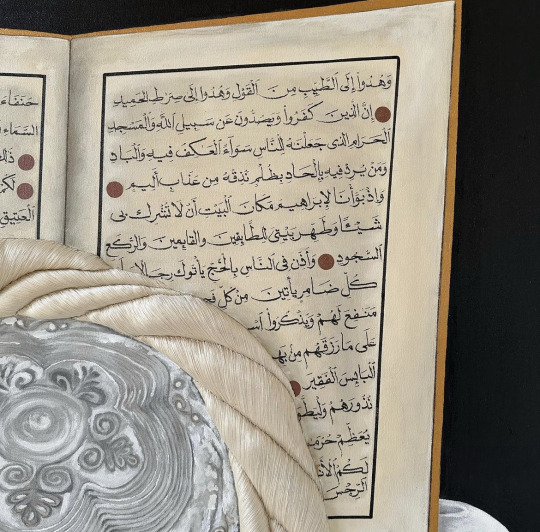 وَهُدُوا إِلَى الطَّيِّبِ مِنَ الْقَوْلِ وَهُدُوا إِلَى صِرَٰطِ الْحَمِيدِ
إِنَّ الَّذِينَ كَفَرُوا وَيَصُدُّونَ عَن سَبِيلِ اللَّهِ وَالْمَسْجِدِ
الْحَرَامِ الَّذِي جَعَلْنَٰهُ لِلنَّاسِ سَوَاءً الْعَٰكِفُ فِيهِ وَالْبَادِ
وَمَن يُرِدْ فِيهِ بِإِلْحَادٍ بِظُلْمٍ نُذِقْهُ مِنْ عَذَابٍ أَلِيمٍ
وَإِذْ بَوَّأْنَا لِإِبْرَٰهِيمَ مَكَانَ الْبَيْتِ أَن لَا تُشْرِكْ بِي
شَيْـًٔا وَطَهِّرْ بَيْتِيَ لِلطَّائِفِينَ وَالْقَائِمِينَ وَالرُّكَّعِ
السُّجُودِ وَأَذِّن فِي النَّاسِ بِالْحَجِّ يَأْتُوكَ رِجَالًا
كُلِّ ضَامِرٍ يَأْتِينَ مِن كُلِّ
مَنَٰفِعَ لَهُمْ وَيَذْكُرُوا
عَلَىٰ مَا رَزَقَهُم مِن
الْبَائِسَ الْفَقِيرَ
نُذُورَهُمْ
يُعَظِّمْ
لَكُمُ
الرِّجْسَ
السَّمَاءِ
ذَٰلِكَ
لَكُمْ
الْعَتِيقِ